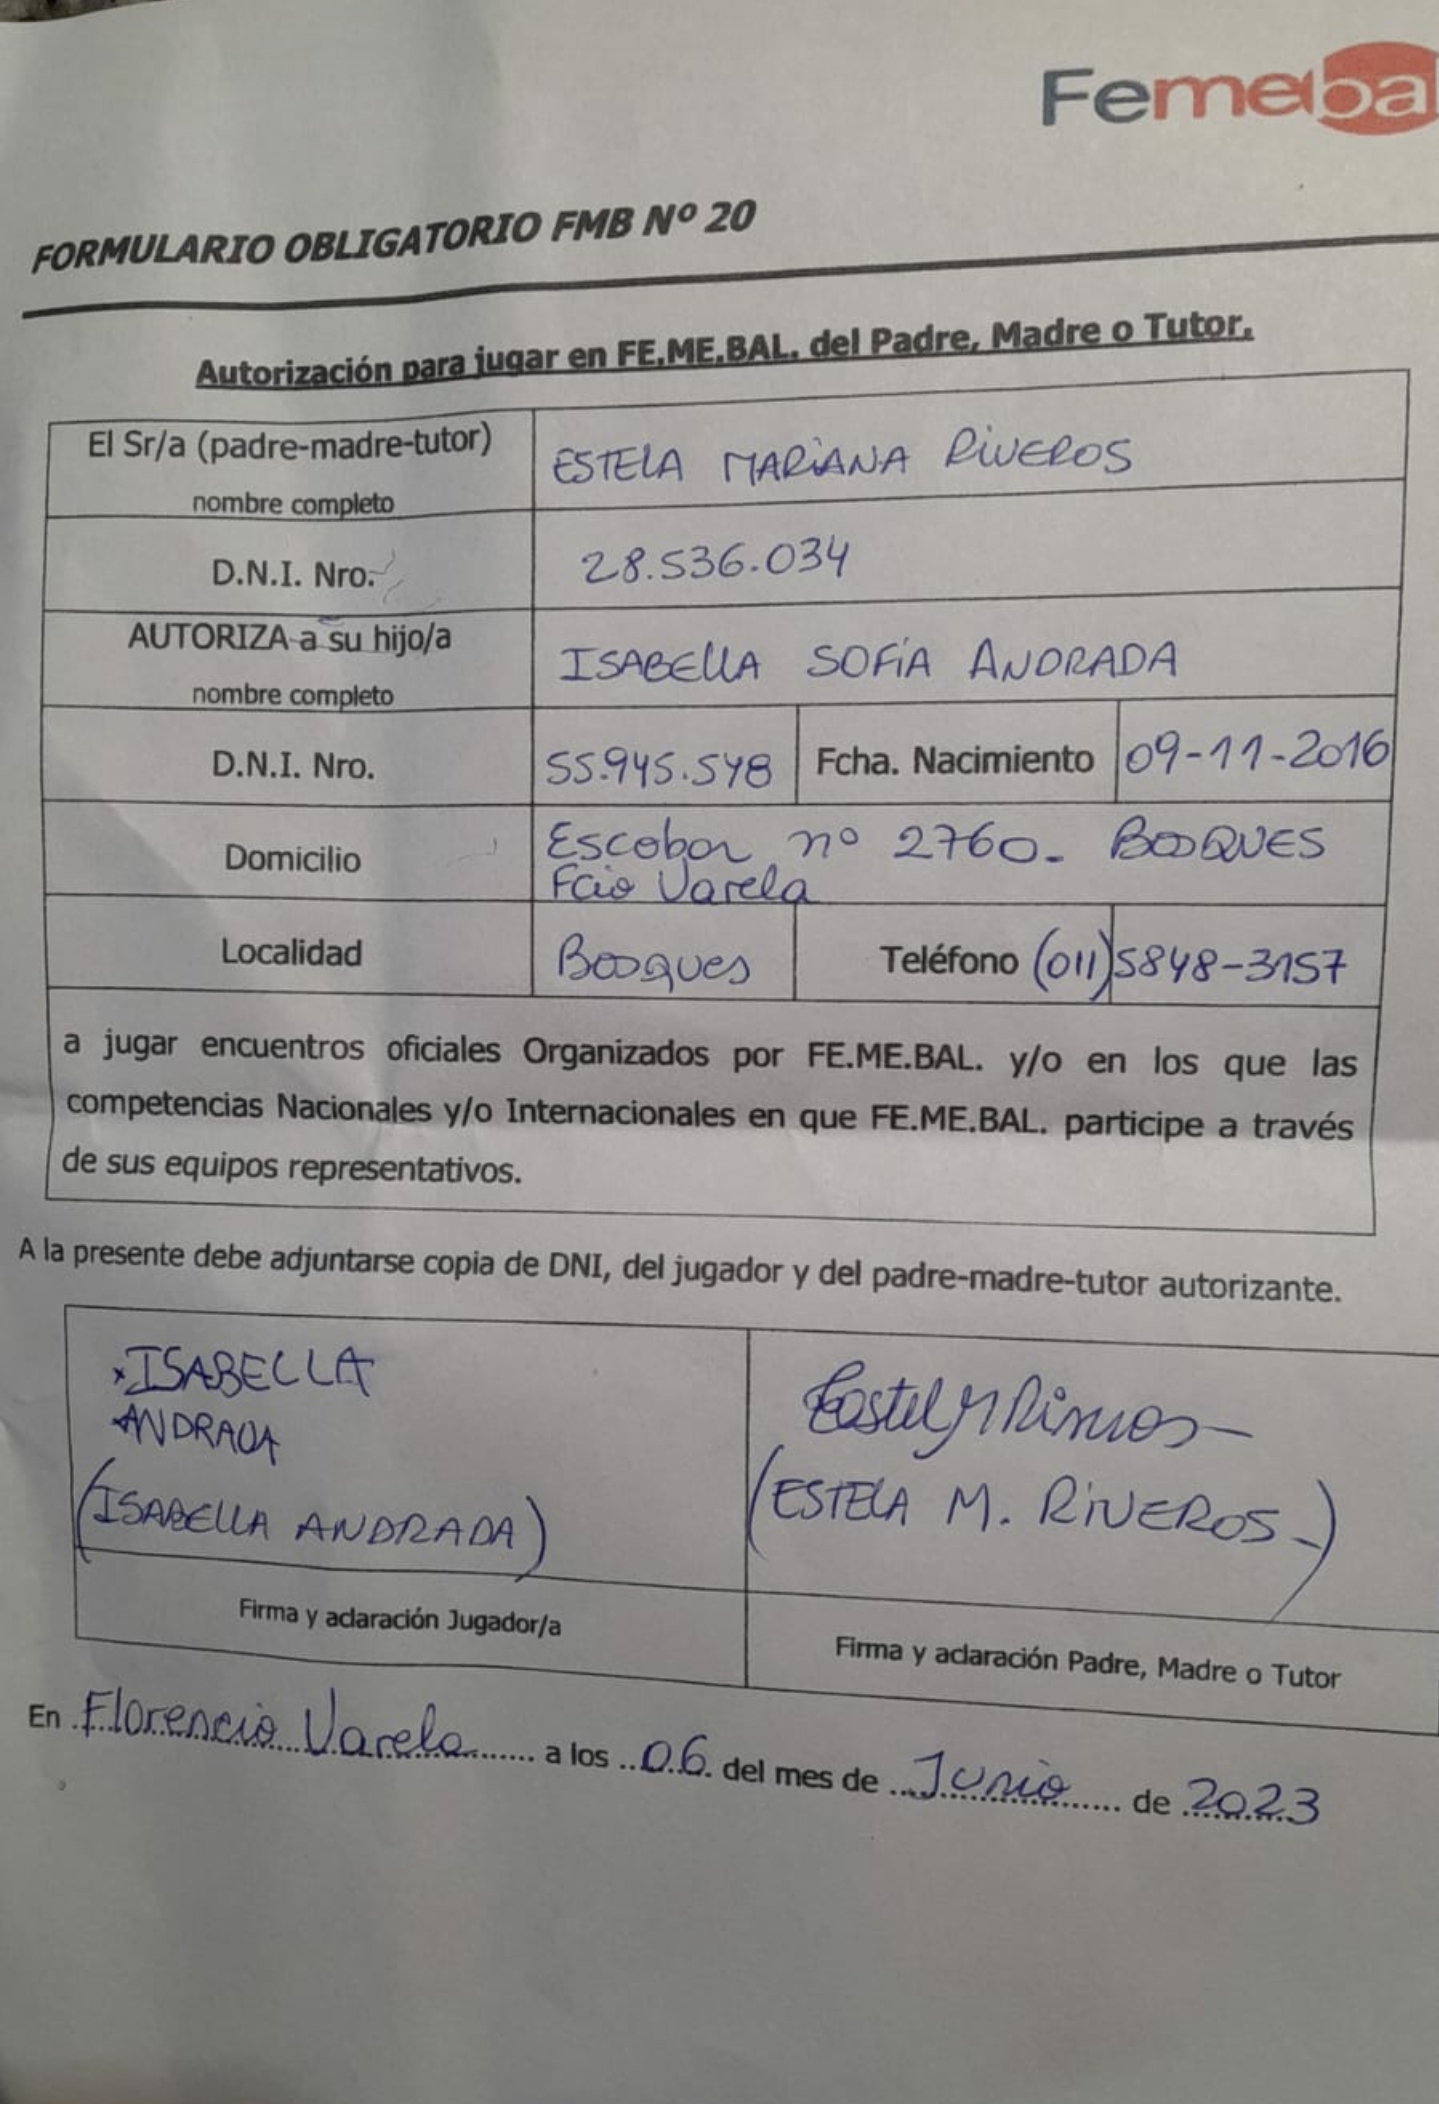 Femebal
FORMULARIO OBLIGATORIO FMB Nº 20
Autorización para jugar en FE.ME.BAL. del Padre, Madre o Tutor.
El Sr/a (padre-madre-tutor)
nombre completo
ESTELA MARIANA RIVEROS
D.N.I. Nro.
28.536.034
AUTORIZA a su hijo/a
nombre completo
ISABELLA SOFÍA ANDRADA
D.N.I. Nro.
55.945.548
Fcha. Nacimiento
09-11-2016
Domicilio
Escobar nº 2760. BOSQUES
Fcio Varela
Localidad
Bosques
Teléfono (011)5848-3157
a jugar encuentros oficiales Organizados por FE.ME.BAL. y/o en los que las
competencias Nacionales y/o Internacionales en que FE.ME.BAL. participe a través
de sus equipos representativos.
A la presente debe adjuntarse copia de DNI, del jugador y del padre-madre-tutor autorizante.
ISABELLA
ANDRADA
(ISABELLA ANDRADA)
Firma y aclaración Jugador/a
(ESTELA M. RIVEROS-)
Firma y aclaración Padre, Madre o Tutor
En Florencio Varela a los 06 del mes de Junio de 2023